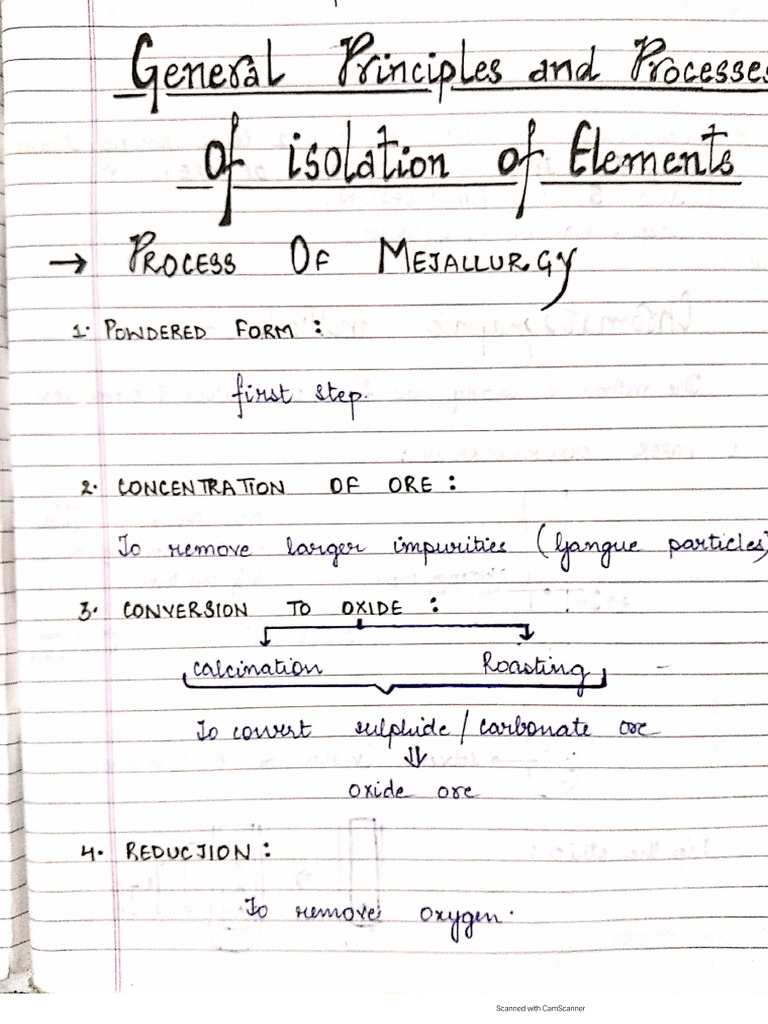 General Principles and Processes
of isolation of Elements
→ PROCESS OF METALLURGY
1. POWDERED FORM :
first step.
2. CONCENTRATION OF ORE :
To remove larger impurities (Gangue particles)
3. CONVERSION TO OXIDE :
calcination Roasting
To convert sulphide / carbonate ore
⇓
oxide ore
4. REDUCTION :
To remove oxygen.
Scanned with CamScanner